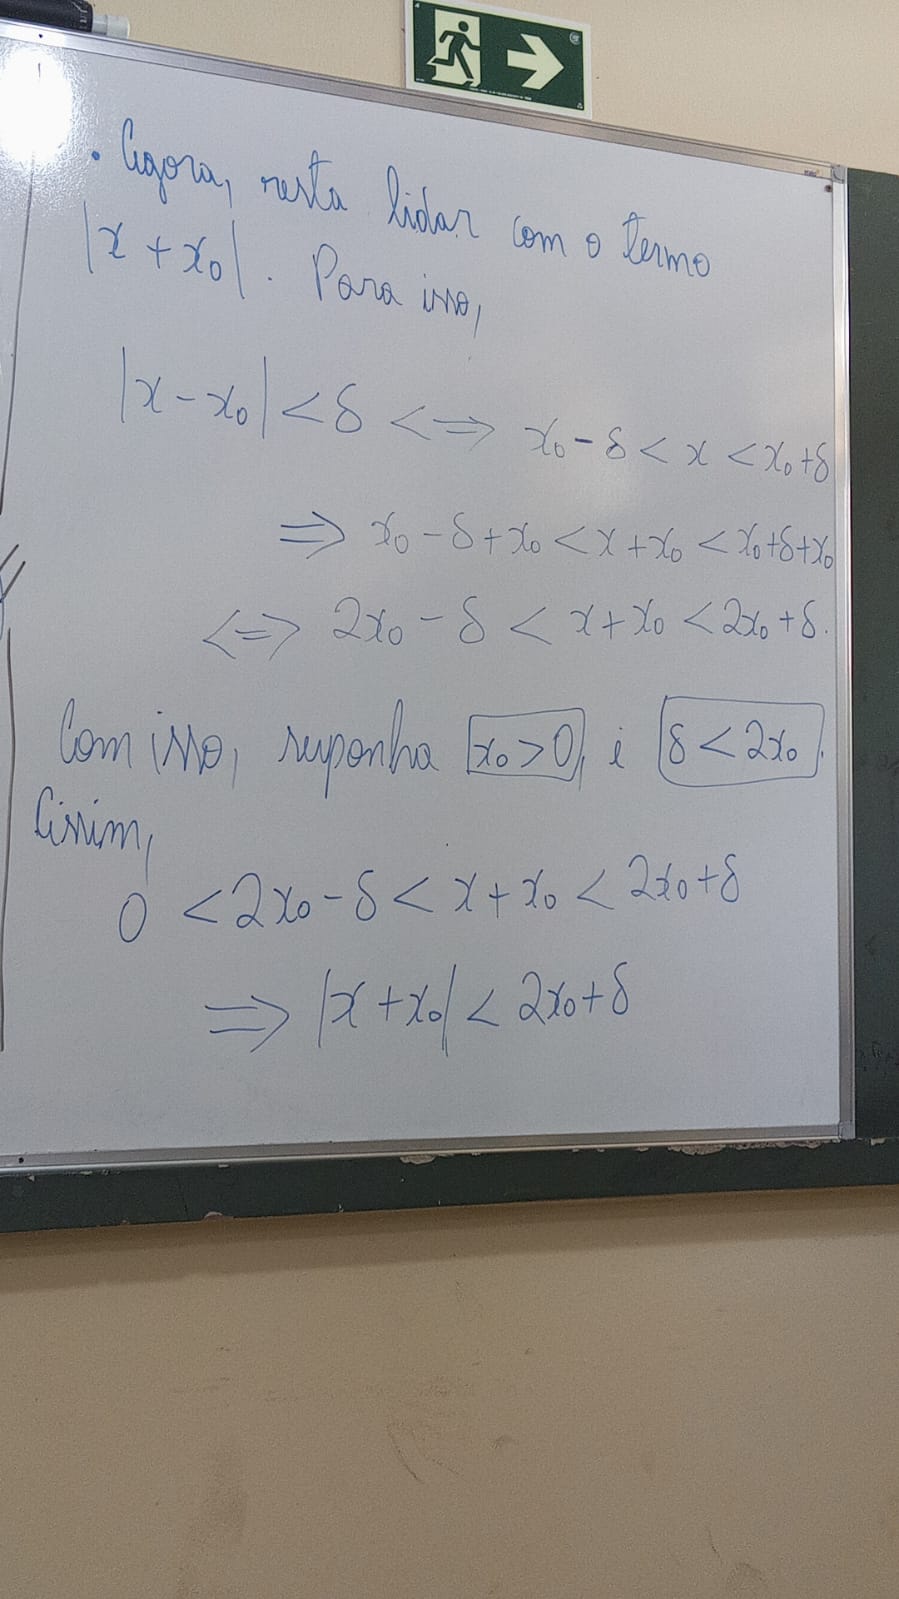 • Agora, resta lidar com o termo
|x + x₀|. Para isso,
|x - x₀| < δ <=> x₀ - δ < x < x₀ + δ
=> x₀ - δ + x₀ < x + x₀ < x₀ + δ + x₀
<=> 2x₀ - δ < x + x₀ < 2x₀ + δ.
Com isso, suponha x₀ > 0, e δ < 2x₀.
Assim,
0 < 2x₀ - δ < x + x₀ < 2x₀ + δ
=> |x + x₀| < 2x₀ + δ